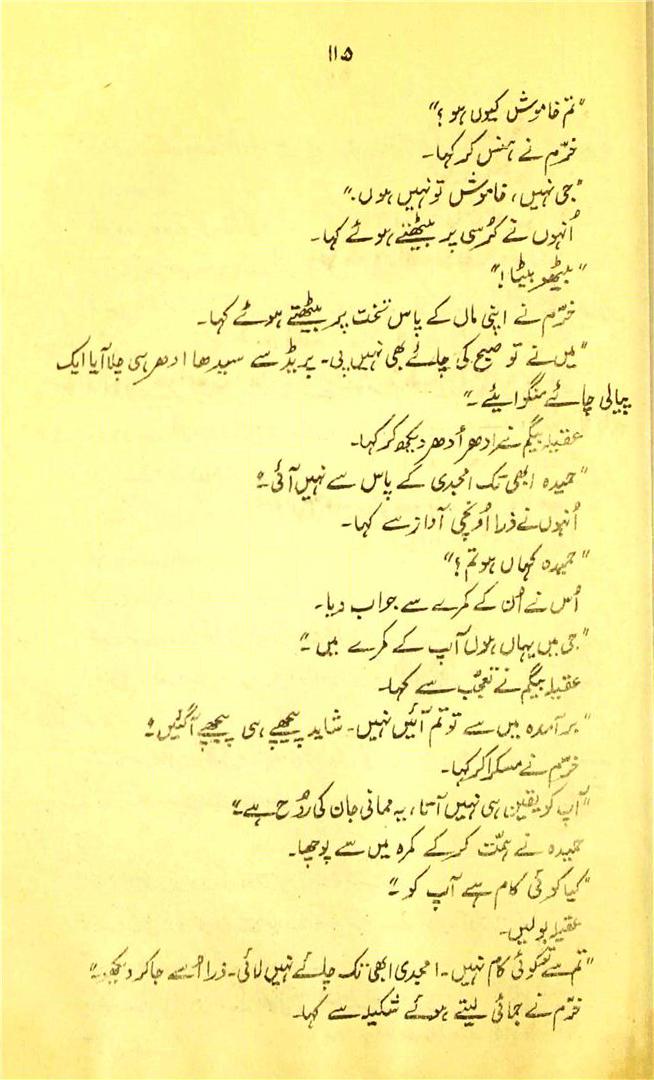 ۱۱۵
"تم خاموش کیوں ہو؟"
خرّم نے ہنس کر کہا۔
"جی نہیں، خاموش تو نہیں ہوں۔"
اُنہوں نے کُرسی پر بیٹھتے ہوئے کہا۔
"بیٹھو بیٹا!"
خرّم نے اپنی ماں کے پاس تخت پر بیٹھتے ہوئے کہا۔
"میں نے تو صبح کی چائے بھی نہیں پی۔ پریڈ سے سیدھا ادھر ہی چلا آیا ایک
پیالی چائے منگوایئے۔"
عقیلہ بیگم نے اِدھر اُدھر دیکھ کر کہا۔
"حمیدہ ابھی تک امجدی کے پاس سے نہیں آئی۔"
اُنہوں نے ذرا اُونچی آواز سے کہا۔
"حمیدہ کہاں ہو تم؟"
اُس نے اُن کے کمرے سے جواب دیا۔
"جی میں یہاں ہوں آپ کے کمرے میں۔"
عقیلہ بیگم نے تعجّب سے کہا۔
"برآمدہ میں سے تو تم آئیں نہیں۔ شاید پیچھے ہی پیچھے آ گئیں۔"
خرّم نے مسکرا کر کہا۔
"آپ کو یقین ہی نہیں آتا، یہ ممانی جان کی رُوح ہے۔"
حمیدہ نے ہمّت کر کے کمرہ میں سے پوچھا۔
"کیا کوئی کام ہے آپ کو۔"
عقیلہ بولیں۔
"تم سے تو کوئی کام نہیں۔ امجدی ابھی تک چائے نہیں لائی۔ ذرا اُسے جا کر دیکھو۔"
خرّم نے جمائی لیتے ہوئے شکیلہ سے کہا۔